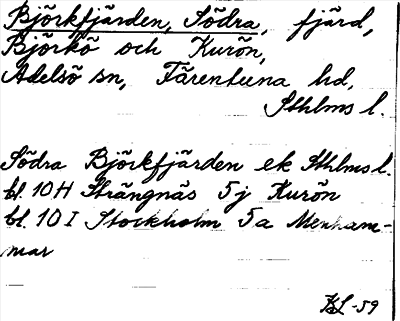 Björkfjärden, Södra, fjärd,
Björkö och Kurön,
Adelsö sn, Färentuna hd,
Sthlms l.
Södra Björkfjärden ek Sthlms l.
bl. 10 H Strängnäs 5 j Kurön
bl. 10 I Stockholm 5 a Menham-
mar
KL-59